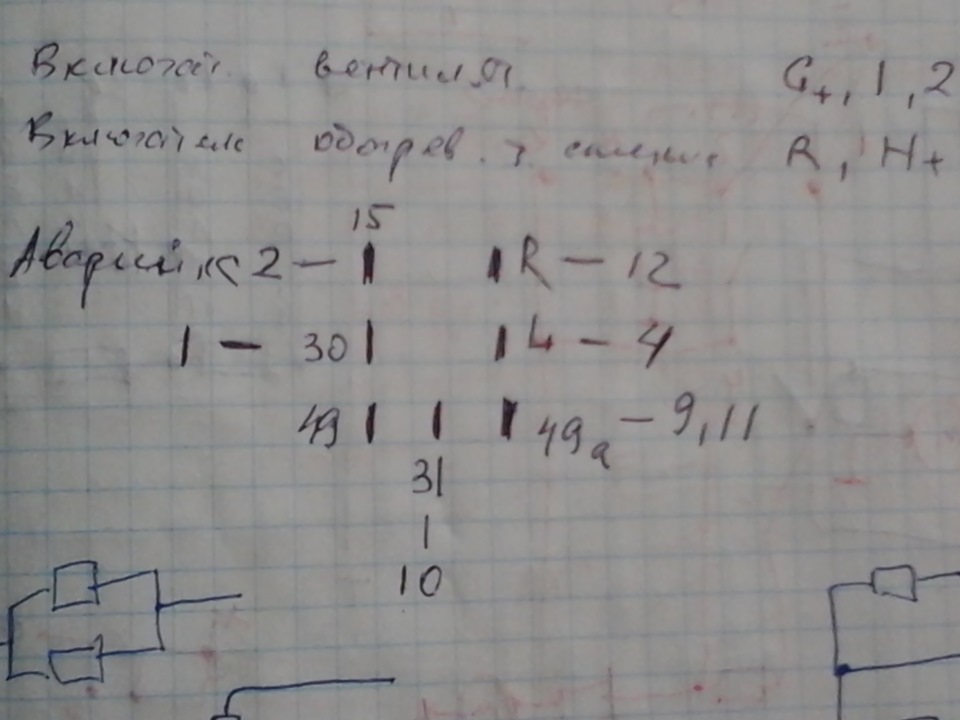 Включат. вентил.
G+, 1, 2
Включатель обогрев.
R, H+
15
Аварийка 2 — R — 12
1 — 30 L — 4
49 49a — 9, 11
31
10